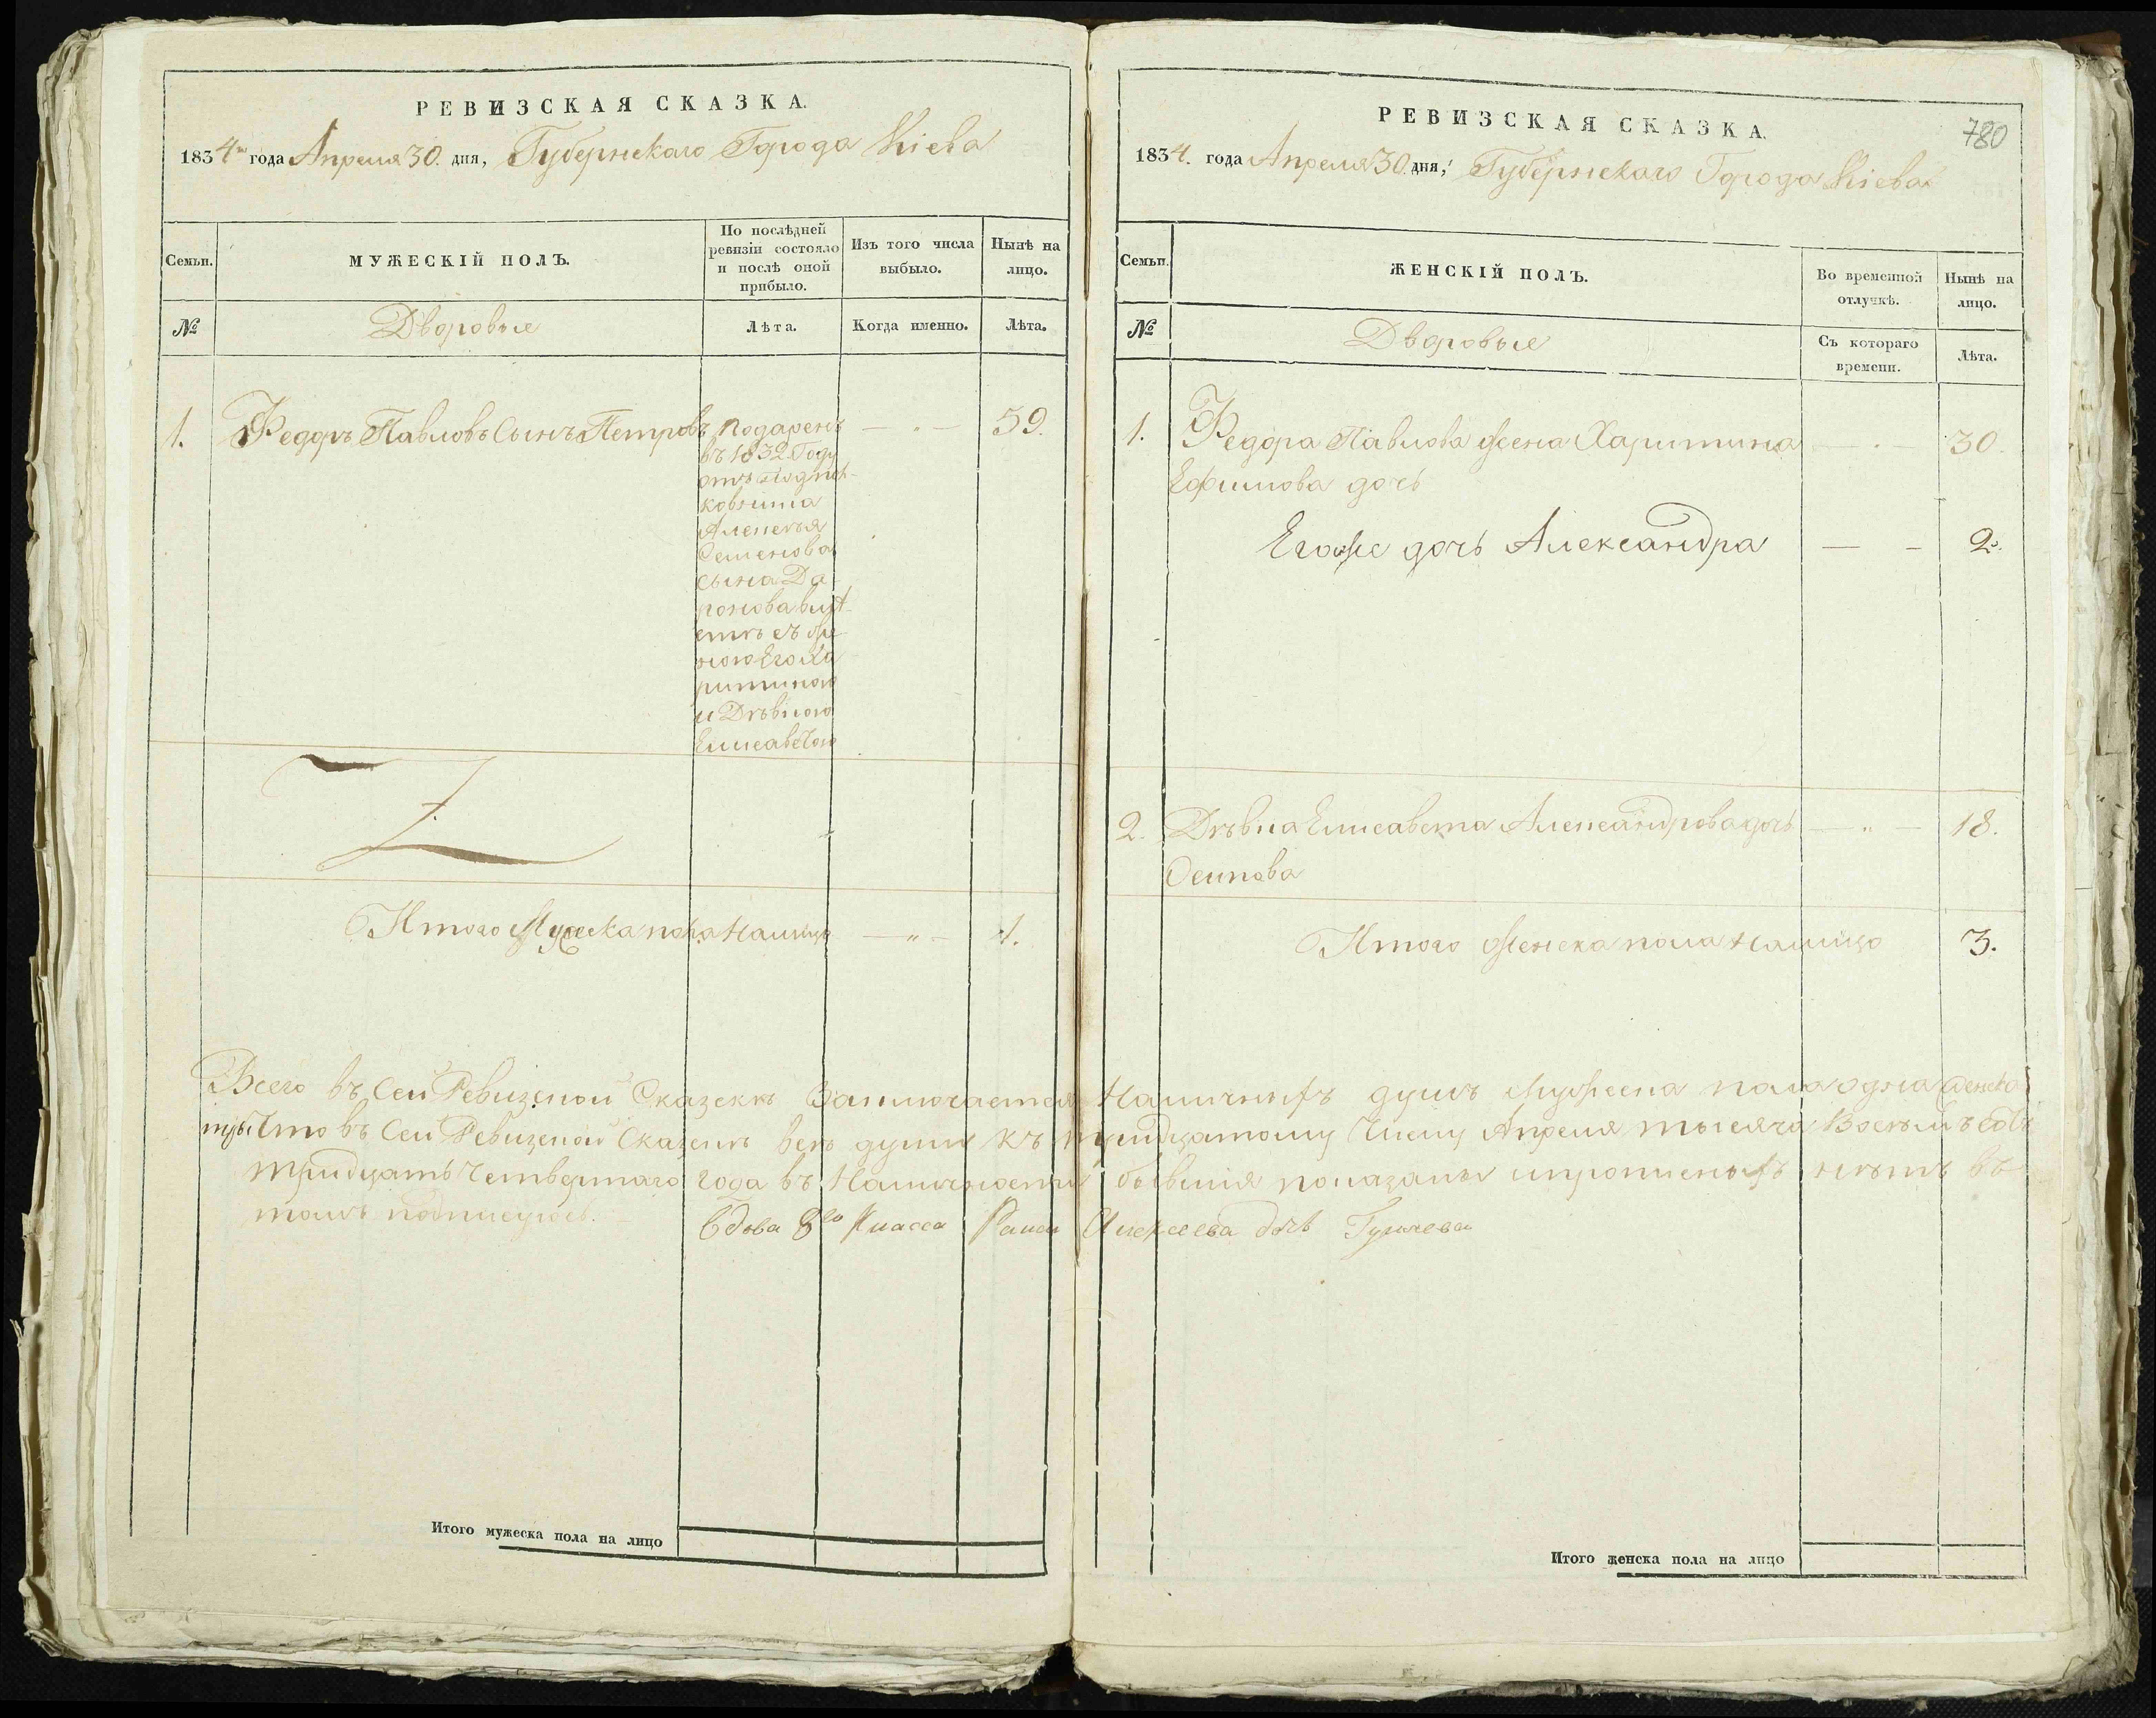 РЕВИЗСКАЯ СКАЗКА.
1834го года Апреля 30. дня, Губернскаго Города Кіева
Семьи.
МУЖЕСКІЙ ПОЛЪ.
По послѣдней
ревизіи состояло
и послѣ оной
прибыло.
Изъ того числа
выбыло.
Нынѣ на
лицо.
№
Дворовые
Лѣта.
Когда именно.
Лѣта.
1. Федоръ Павловъ Сынъ Петровъ
подаренъ
въ 1832. Году
отъ подпол-
ковника
Алексея
Семенова
сына
вмѣ-
сте съ же-
ною Его Ха
ритиною
и Дѣвкою
Елисаветою
— " —
59.
Итого Мужеска пола Налицо — " — 1.
РЕВИЗСКАЯ СКАЗКА.
780
1834. года Апреля 30. дня, Губернскаго Города Кіева
Семьи.
ЖЕНСКІЙ ПОЛЪ.
Во временной
отлучкѣ.
Нынѣ на
лицо.
№
Дворовые
Съ котораго
времени.
Лѣта.
1. Федора Павлова жена Харитина — " — 30.
Ефимова дочь
Егоже дочь Александра — — 2.
2. Дѣвка Елисавета Александрова дочь — " — 18.
Осипова
Итого Женска пола налицо 3.
Всего въ Сей Ревизской Сказскѣ Заключается Наличныхъ душъ Мужеска пола одна женска
три Что въ Сей Ревизской Сказкѣ все души къ тридцатому Числу Апреля тысяча Восемъ сотъ
тридцать Четвертаго года въ Наличности бывшія показаны и прописныхъ нѣтъ въ
томъ подписуюсь. Вдова 8го Класса Алексеева дочь
Итого мужеска пола на лицо
Итого женска пола на лицо